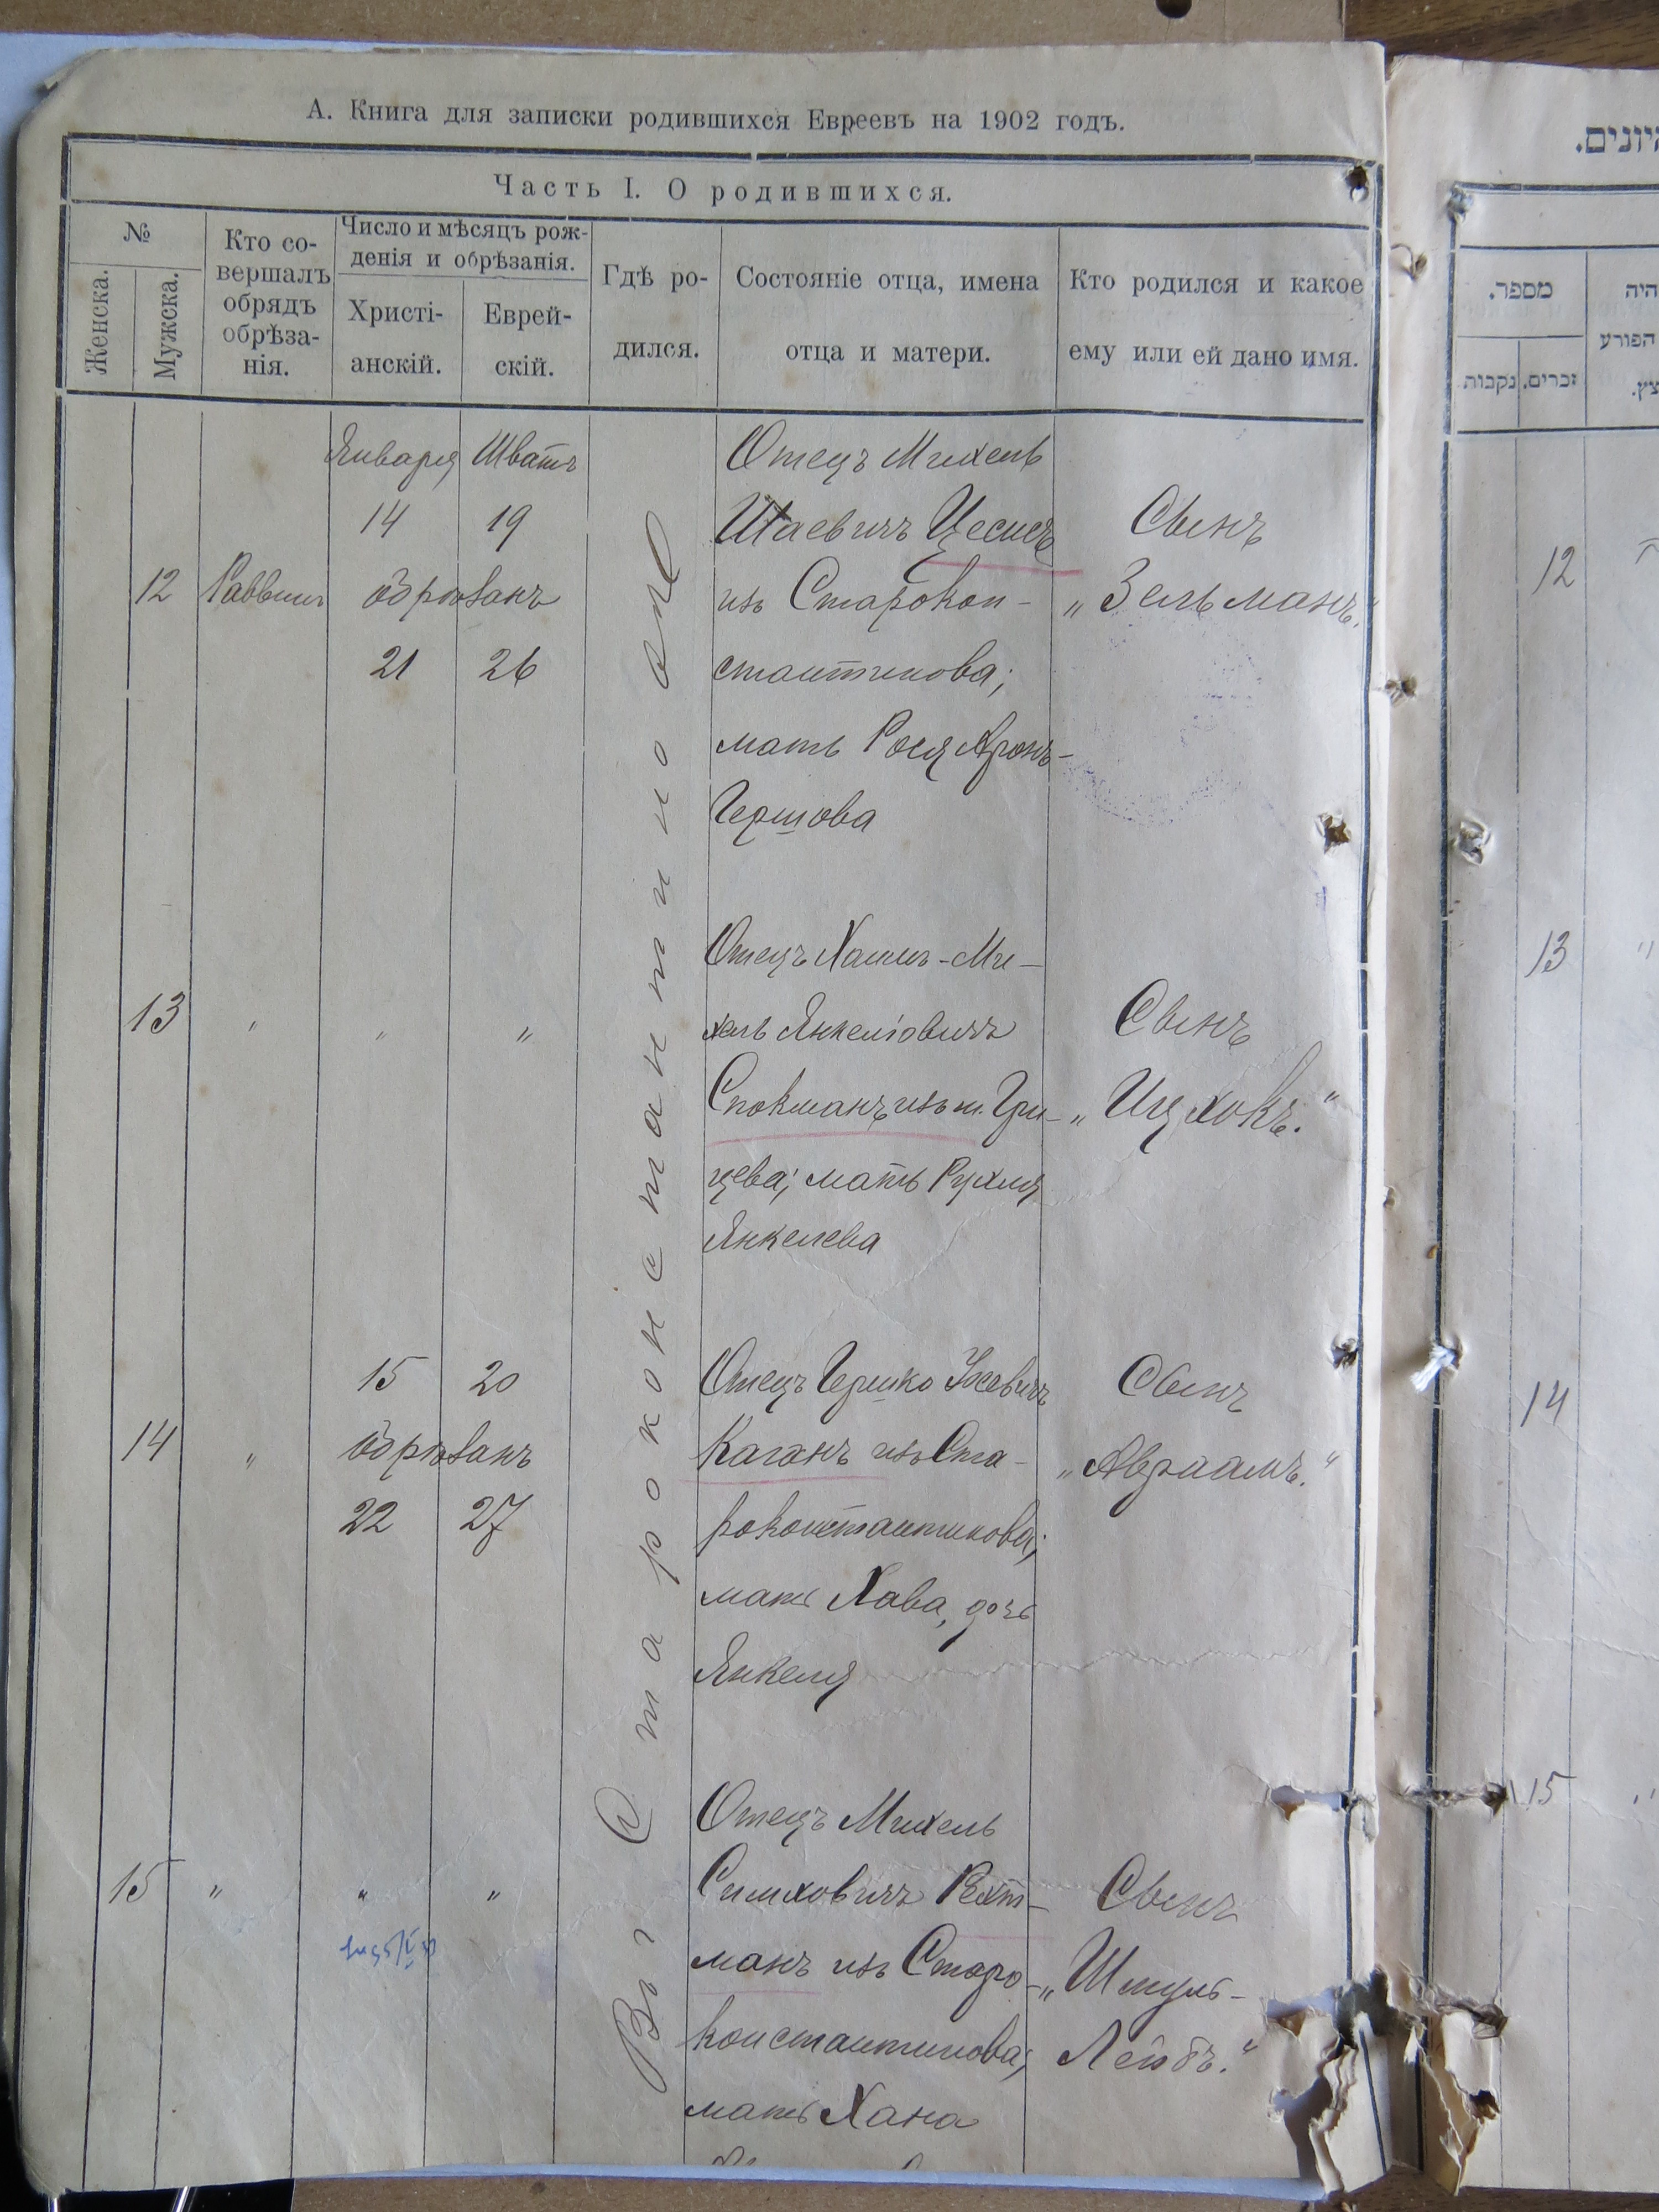 А. Книга для записки родившихся Евреевъ на 1902 годъ.
Часть I. О родившихся.
№
Женска.
Мужска.
Кто со-
вершалъ
обрядъ
обрѣза-
нія.
Число и мѣсяцъ рож-
денія и обрѣзанія.
Христі-
анскій.
Еврей-
скій.
Гдѣ ро-
дился.
Состояніе отца, имена
отца и матери.
Кто родился и какое
ему или ей дано имя.
Въ г. Старокон­стантиновѣ
12
Раввинъ
Января Шватъ
14 19
обрѣзанъ
21 26
Отецъ Михель
Шаевичъ Цесисъ
изъ Старокон-
стантинова;
мать Рося Аронъ-
Гершова
Сынъ
„Зельманъ."
13
" " "
Отецъ Хаимъ-Ми-
хель Янкелiовичъ
Спокманъ изъ м. Гри-
цева; мать Рухля
Янкелева
Сынъ
„Ицхокъ."
14
"
15 20
обрѣзанъ
22 27
Отецъ Гершко
Каганъ изъ Ста-
роконстантинова;
мать Хава, дочь
Янкеля
Сынъ
„Авраамъ."
15
" " "
Отецъ Михель
Симховичъ Рехт-
манъ изъ Старо-
константинова;
мать Хана
Сынъ
„Шмуль-
Лейбъ."
מספר.
זכרים.
נקבות
היה
הפורע
12
13
14
15